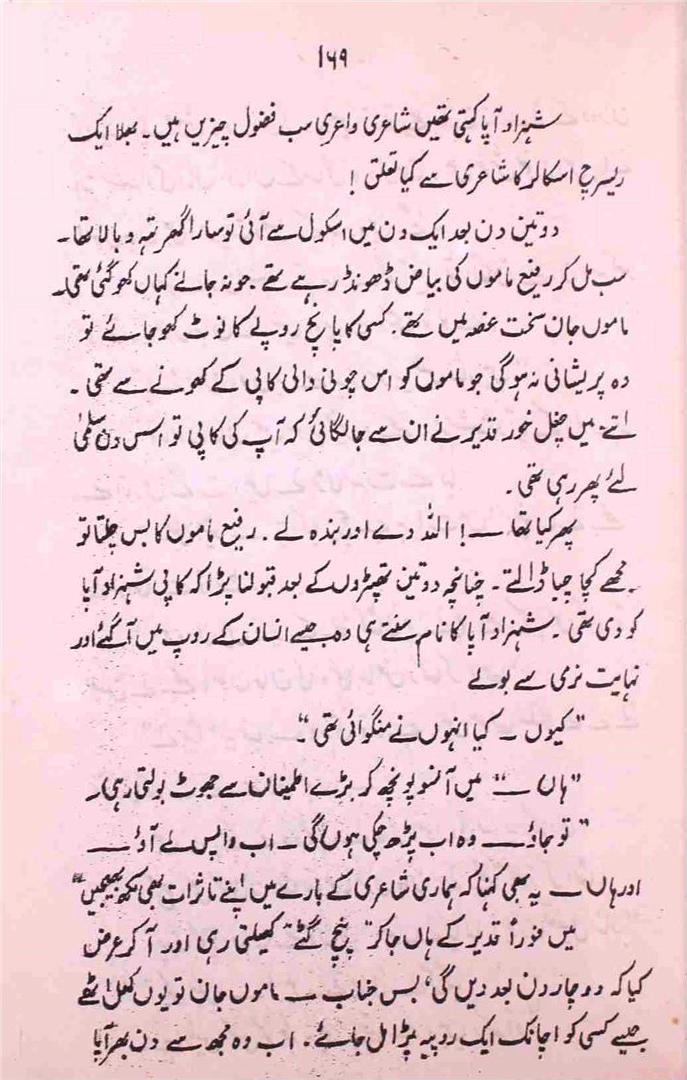 ۱۶۹
شہزاد آپا کہتی تھیں شاعری واعری سب فضول چیزیں ہیں۔ بھلا ایک
ریسرچ اسکالر کا شاعری سے کیا تعلق!
دو تین دن بعد ایک دن میں اسکول سے آئی تو سارا گھر تہہ و بالا تھا۔
سب مل کر رفیع ماموں کی بیاض ڈھونڈ رہے تھے۔ جو نہ جانے کہاں کھو گئی تھی۔
ماموں جان سخت غصہ میں تھے۔ کسی کا پانچ روپے کا نوٹ کھو جائے تو
وہ پریشانی نہ ہوگی جو ماموں کو اس چونی والی کاپی کے کھونے سے تھی۔
اتنے میں چغل خور قدیر نے ان سے جا لگائی کہ آپ کی کاپی تو اس دن سلمیٰ
لئے پھر رہی تھی۔
پھر کیا تھا ــــ! اللہ دے اور بندہ لے۔ رفیع ماموں کا بس چلتا تو
مجھے کچا چبا ڈالتے۔ چنانچہ دو تین تھپڑوں کے بعد قبولنا پڑا کہ کاپی شہزاد آپا
کو دی تھی۔ شہزاد آپا کا نام سنتے ہی وہ جیسے انسان کے روپ میں آ گئے اور
نہایت نرمی سے بولے
"کیوں ـ کیا انہوں نے منگوائی تھی"۔
"ہاں ــــ" میں آنسو پونچھ کر بڑے اطمینان سے جھوٹ بولتی رہی۔
"تو جاؤ ــــ وہ اب پڑھ چکی ہوں گی ـ اب واپس لے آؤ ــــ
اور ہاں ــــ یہ بھی کہنا کہ ہماری شاعری کے بارے میں اپنے تاثرات بھی لکھ بھیجیں"
میں فوراً قدیر کے ہاں جا کر "پنچ گٹے" کھیلتی رہی اور آ کر عرض
کیا کہ دو چار دن بعد دیں گی، بس جناب ــــ ماموں جان تو یوں کھل اٹھے
جیسے کسی کو اچانک ایک روپیہ پڑا مل جائے۔ اب وہ مجھ سے دن بھر آپا